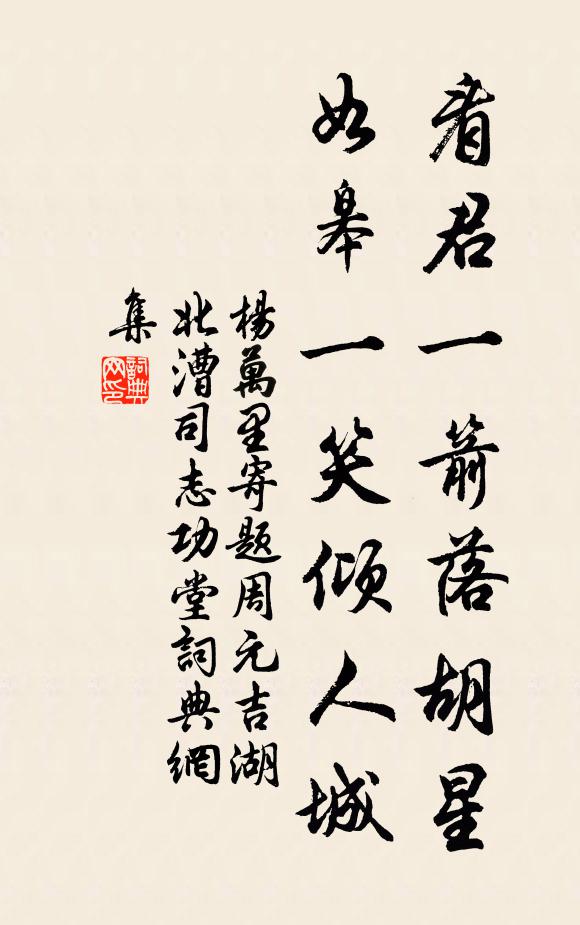 看君一箭落胡星
如皋一笑傾人城
楊萬里寄題周元吉湖
北漕司志功堂詞典網
集
詞典
网印